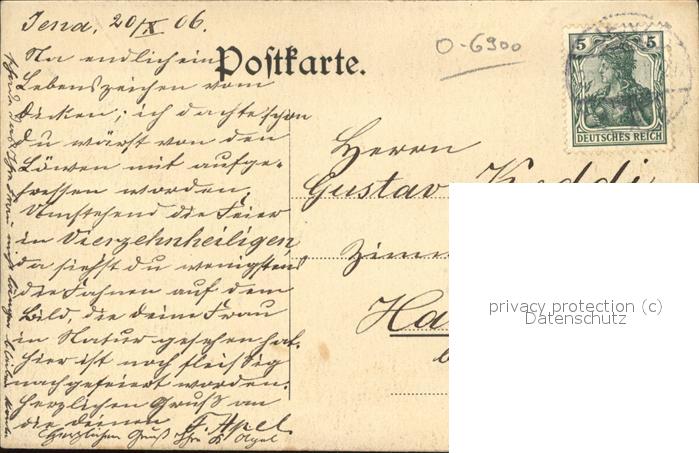 Jena, 20/X 06.
O-6900
Postkarte.
5 5
DEUTSCHES REICH
Na endlich ein
Lebenszeichen vom
Dicken; ich dachte schon
du wärst von den
Löwen mit aufge-
fressen worden.
Umstehend die Feier
in Vierzehnheiligen,
da siehst du wenigstens
die Fahnen auf dem
Bild, die deine Frau
in Natur gesehen hat.
Hier ist noch fleissig
nachgefeiert worden.
Herzlichen Gruss an
die deinen F. Apel
Herzlichen Gruß Ihr K Apel
Herrn
Gustav
Ha
privacy protection (c)
Datenschutz